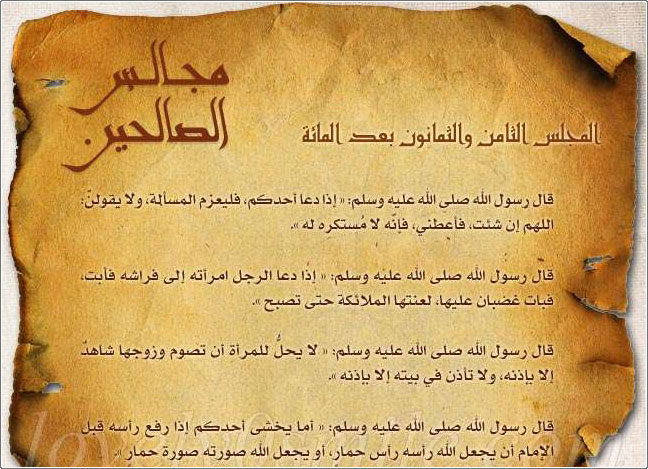 مجالس
الصالحين
المجلس الثامن والثمانون بعد المائة
قال رسول الله صلى الله عليه وسلم: « إذا دعا أحدكم، فليعزم المسألة، ولا يقولنّ:
اللهم إن شئت، فأعطني، فإنّه لا مُستكره له ».
قال رسول الله صلى الله عليه وسلم: « إذا دعا الرجل امرأته إلى فراشه فأبت،
فبات غضبان عليها، لعنتها الملائكة حتى تصبح ».
قال رسول الله صلى الله عليه وسلم: « لا يحلُّ للمرأة أن تصوم وزوجها شاهدٌ
إلا بإذنه، ولا تأذن في بيته إلا بإذنه ».
قال رسول الله صلى الله عليه وسلم: « أما يخشى أحدكم إذا رفع رأسه قبل
الإمام أن يجعل الله رأسه رأس حمارٍ، أو يجعل الله صورته صورة حمارٍ ».